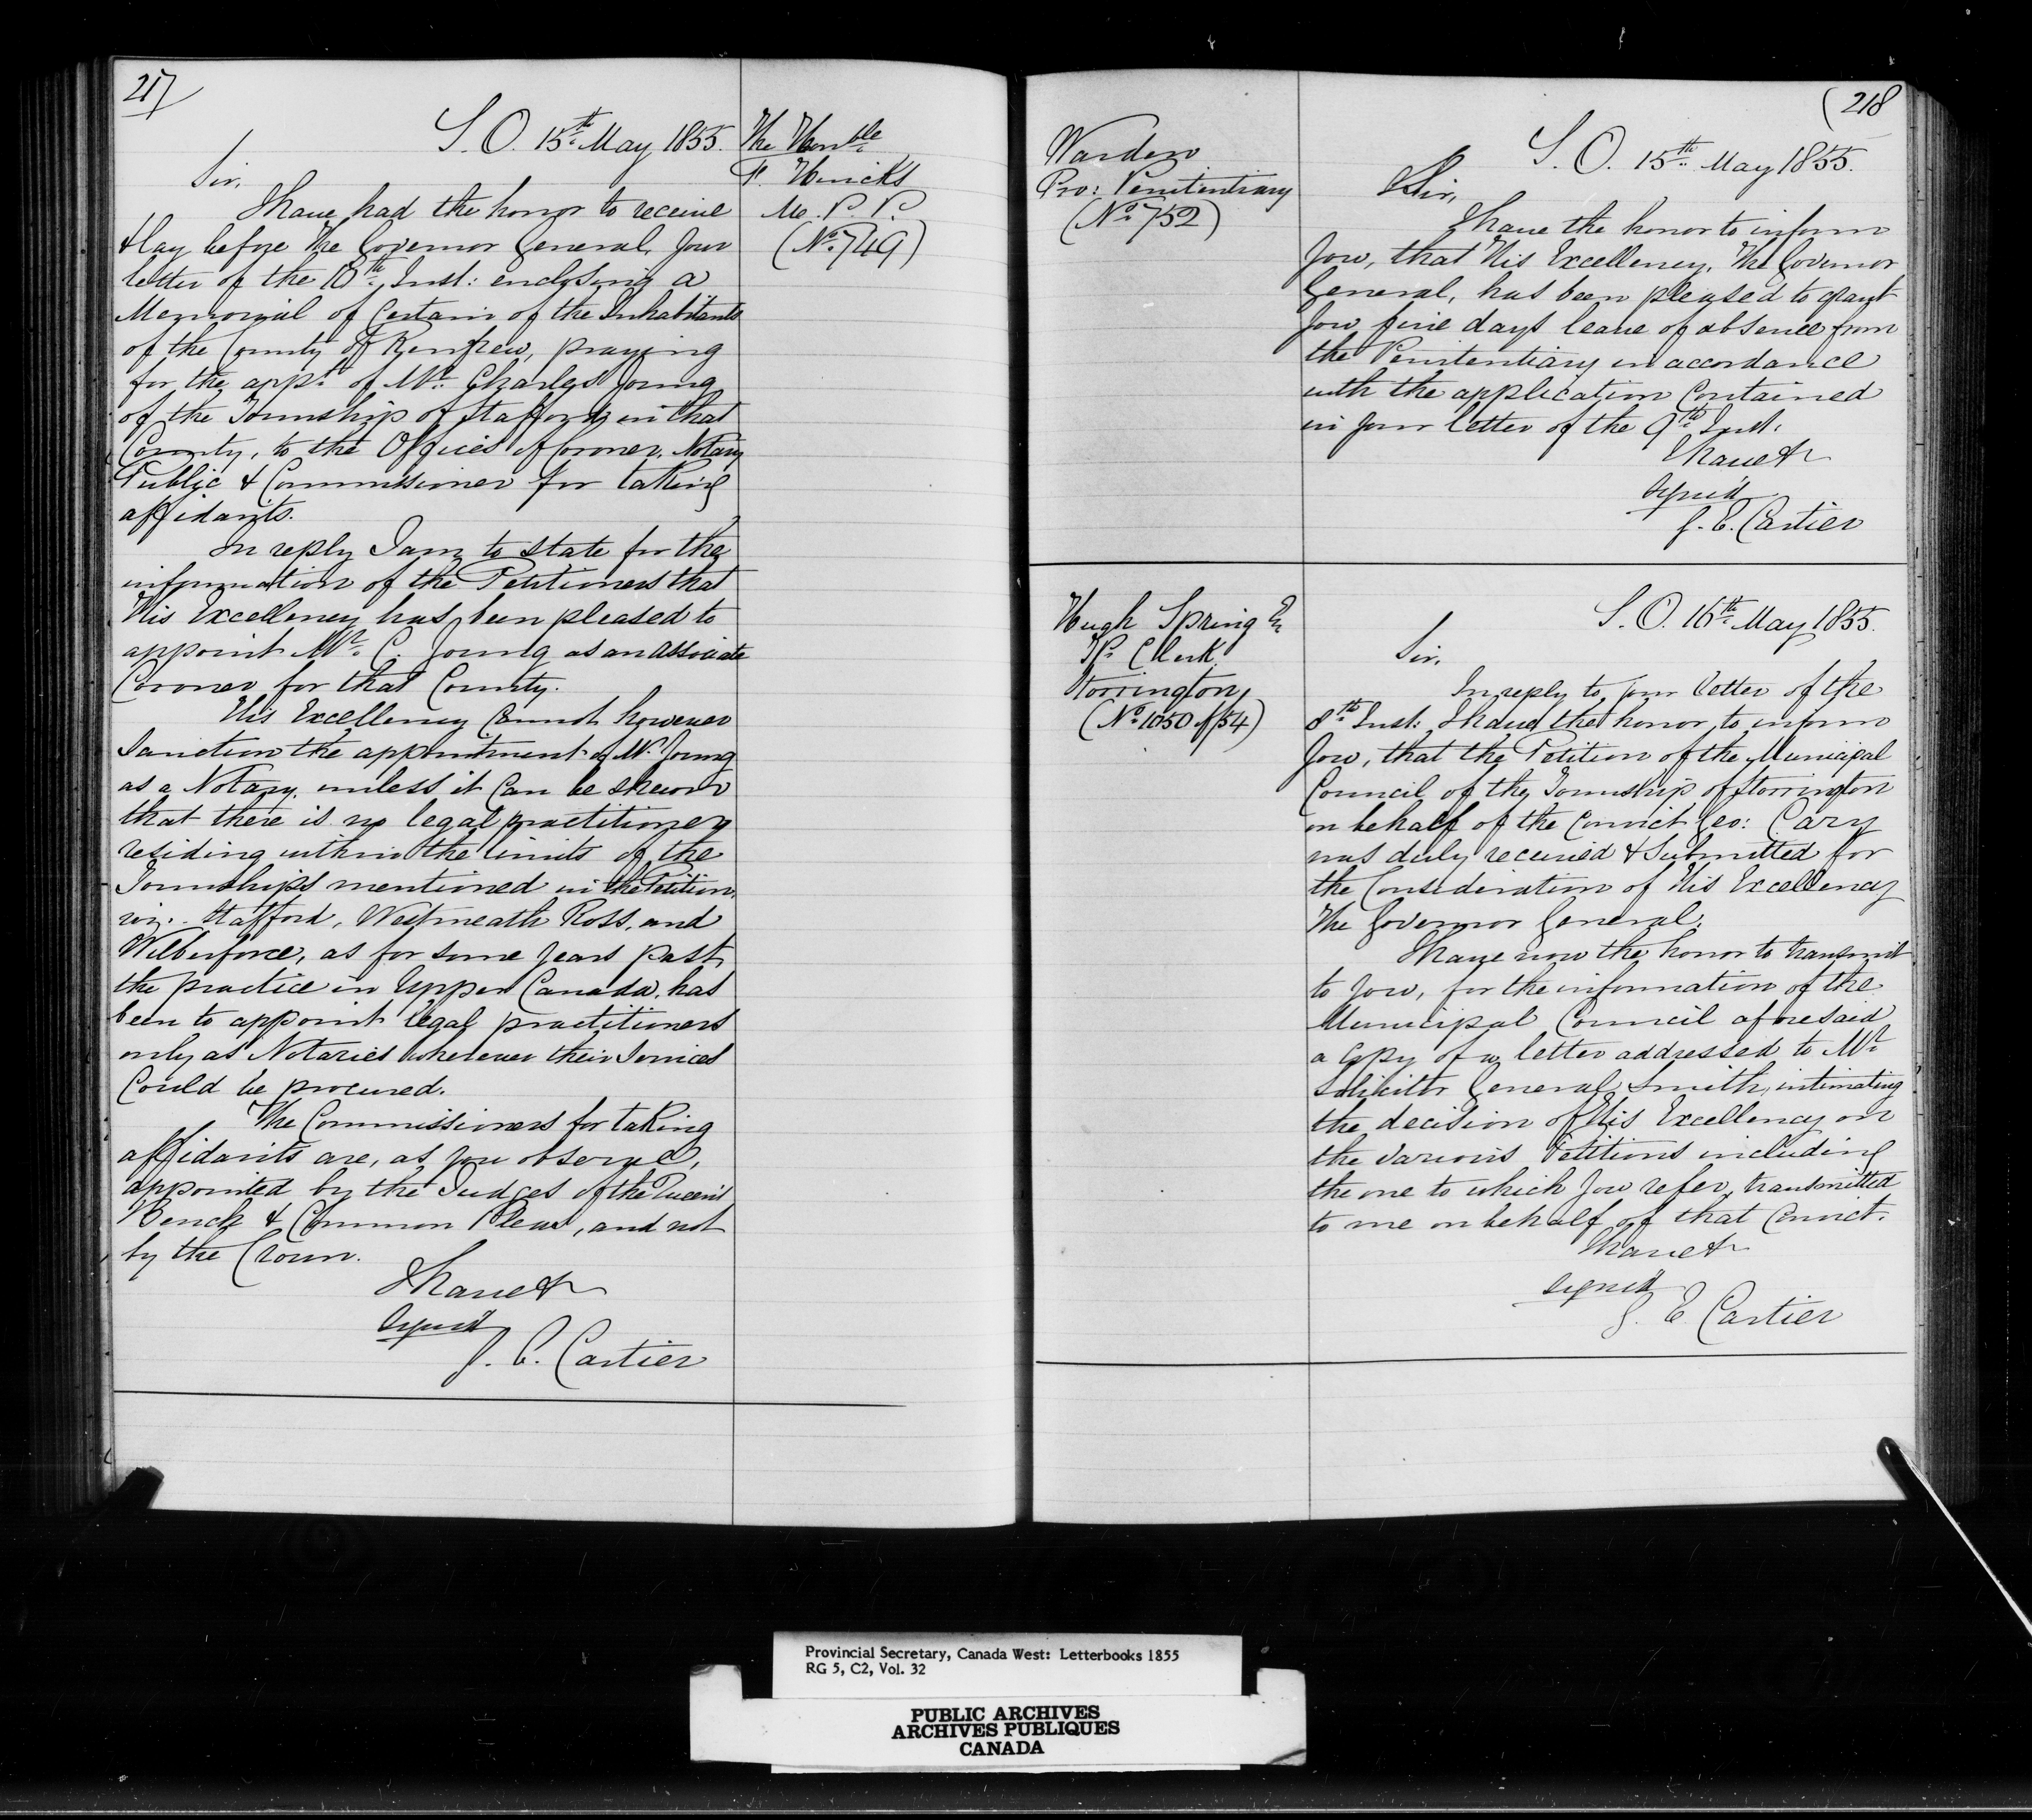 217
S. O. 15th May 1855.
The Honble
F. Hincks
M. P. P.
(No. 749)
Sir,
I have had the honor to receive
& lay before The Governor General, your
letter of the 10th Inst: enclosing a
Memorial of Certain of the Inhabitants
of the County of Renfrew, praying
for the appt. of Mr. Charles Young
of the Township of Stafford in that
County, to the Offices of Coroner, Notary
Public & Commissioner for taking
affidavits.
In reply I am to state for the
information of the Petitioners that
His Excellency has been pleased to
appoint Mr. C. Young as an associate
Coroner for that County.
His Excellency Cannot however
Sanction the appointment of Mr. Young
as a Notary, unless it Can be shewn
that there is no legal practitioner
residing within the limits of the
Townships mentioned in the Petition,
viz. Stafford, Westmeath Ross, and
Wilberforce, as for some years past
the practice in Upper Canada, has
been to appoint legal practitioners
only as Notaries wherever their Services
Could be procured.
The Commissioners for taking
affidavits are, as you observe,
appointed by the Judges of the Queen's
Bench & Common Pleas, and not
by the Crown.
I have &
Signed
G. E. Cartier
(218
Warden
Pro: Penitentiary
(No. 752)
S. O. 15th May 1855.
Sir,
I have the honor to inform
you, that His Excellency, The Governor
General, has been pleased to grant
you five days leave of absence from
the Penitentiary in accordance
with the application Contained
in your letter of the 9th Inst.
I have &
Signed
G. E. Cartier
Hugh Spring Er
Tp. Clerk
Storrington,
(No. 1050 of /54)
S. O. 16th May 1855.
Sir,
In reply to your letter of the
8th Inst: I have the honor to inform
you, that the Petition of the Municipal
Council of the Township of Storrington
on behalf of the Convict Geo: Cary
was duly received & Submitted for
the Consideration of His Excellency
The Governor General.
I have now the honor to transmit
to you, for the information of the
Municipal Council aforesaid
a Copy of a letter addressed to Mr.
Solicitor General Smith, intimating
the decision of His Excellency on
the various Petitions including
the one to which you refer, transmitted
to me on behalf of that Convict.
I have &
Signed
G. E Cartier
Provincial Secretary, Canada West: Letterbooks 1855
RG 5, C2, Vol. 32
PUBLIC ARCHIVES
ARCHIVES PUBLIQUES
CANADA